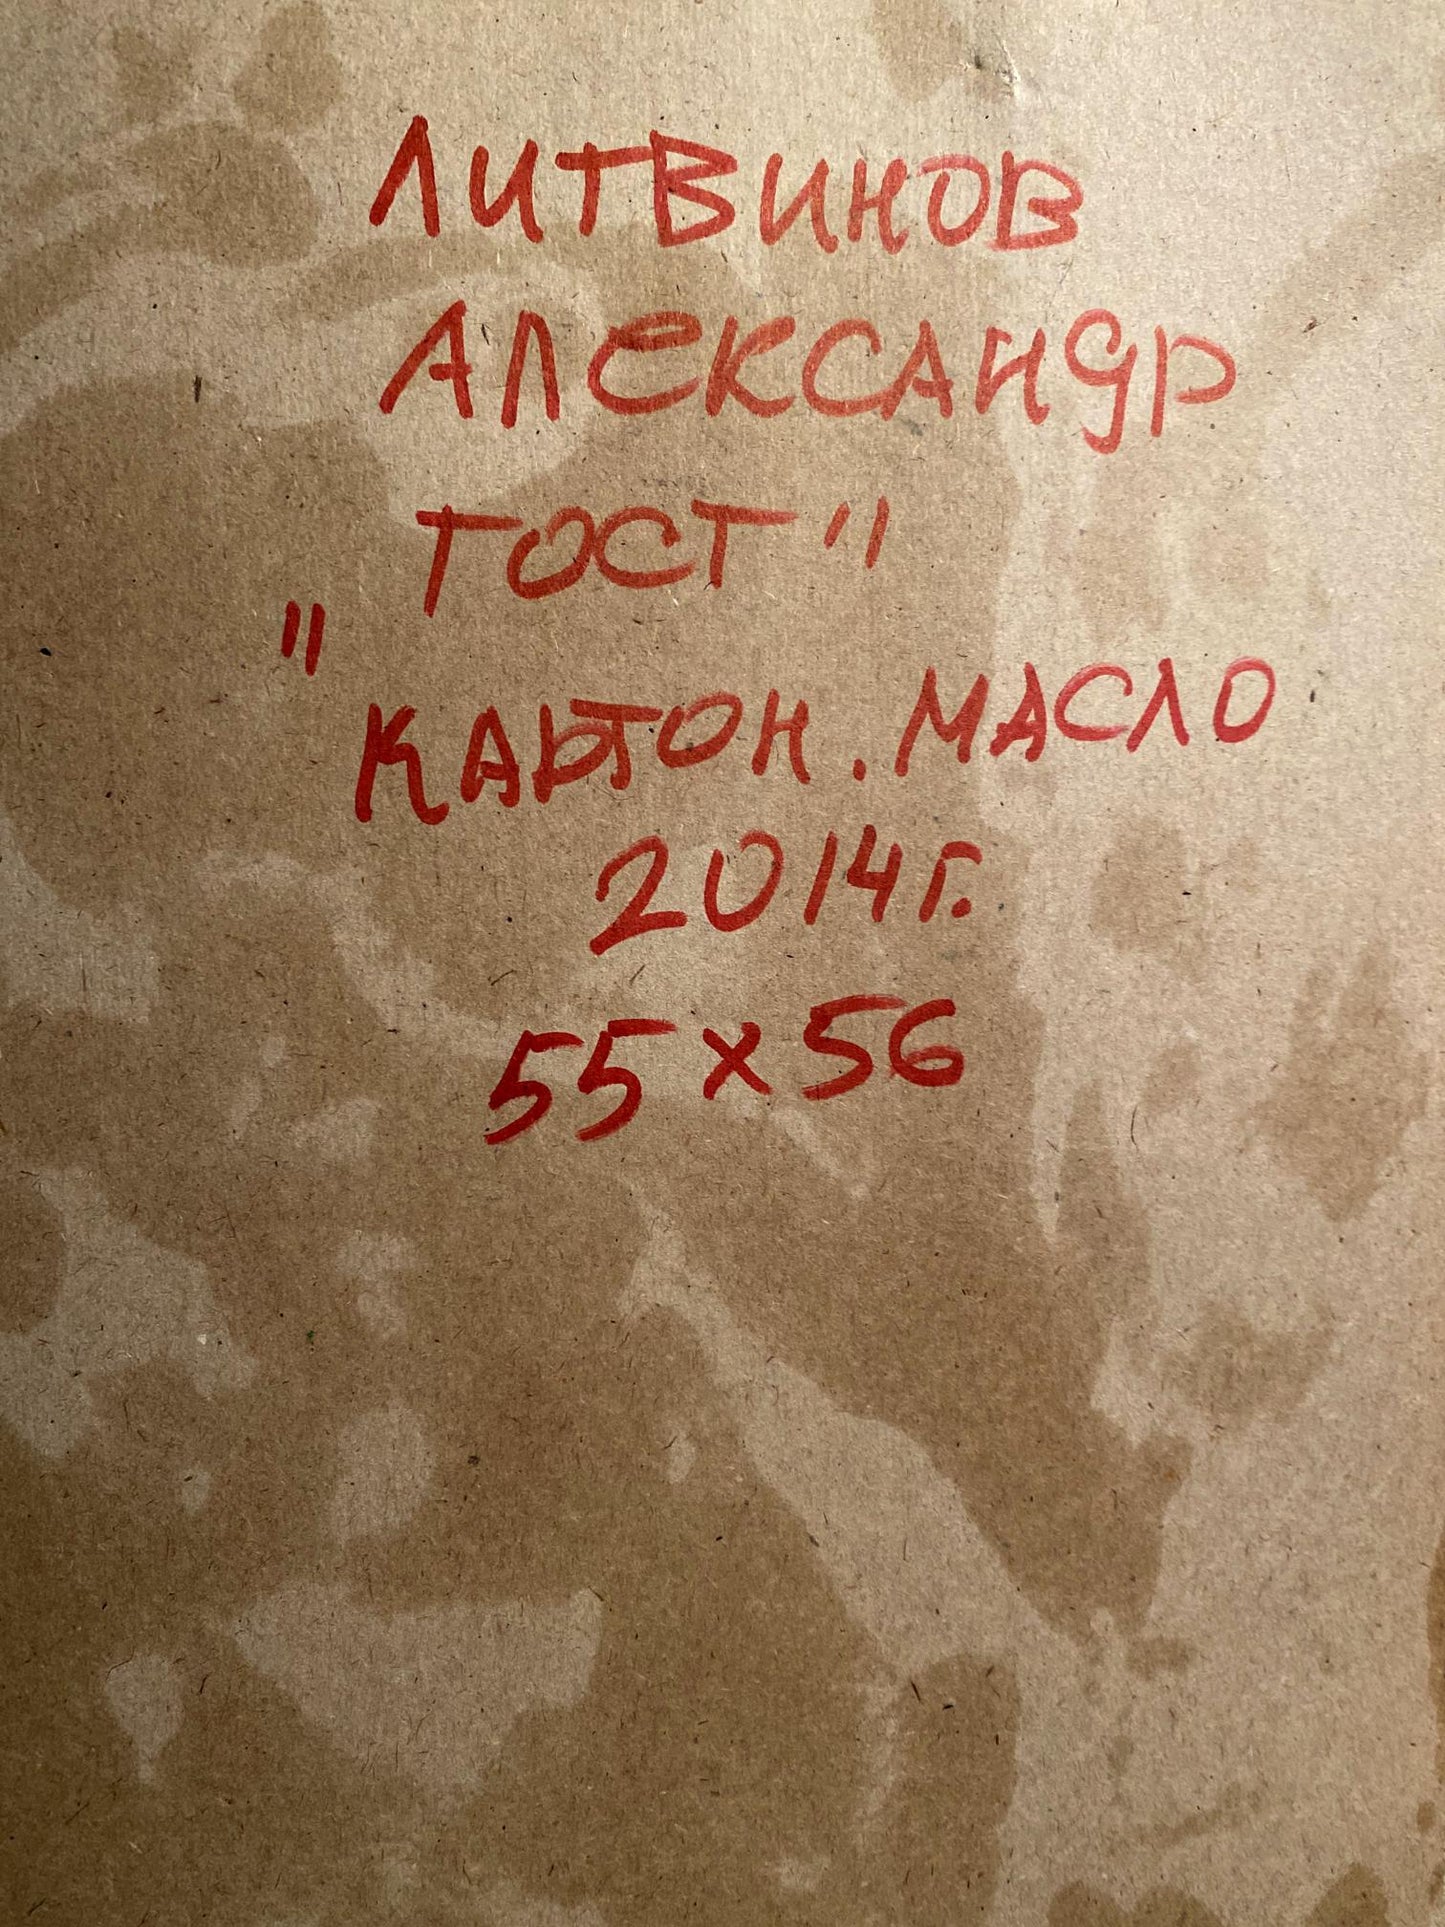 ЛИТВИНОВ
АЛЕКСАНДР
„ТОСТ"
КАРТОН. МАСЛО
2014г.
55х56